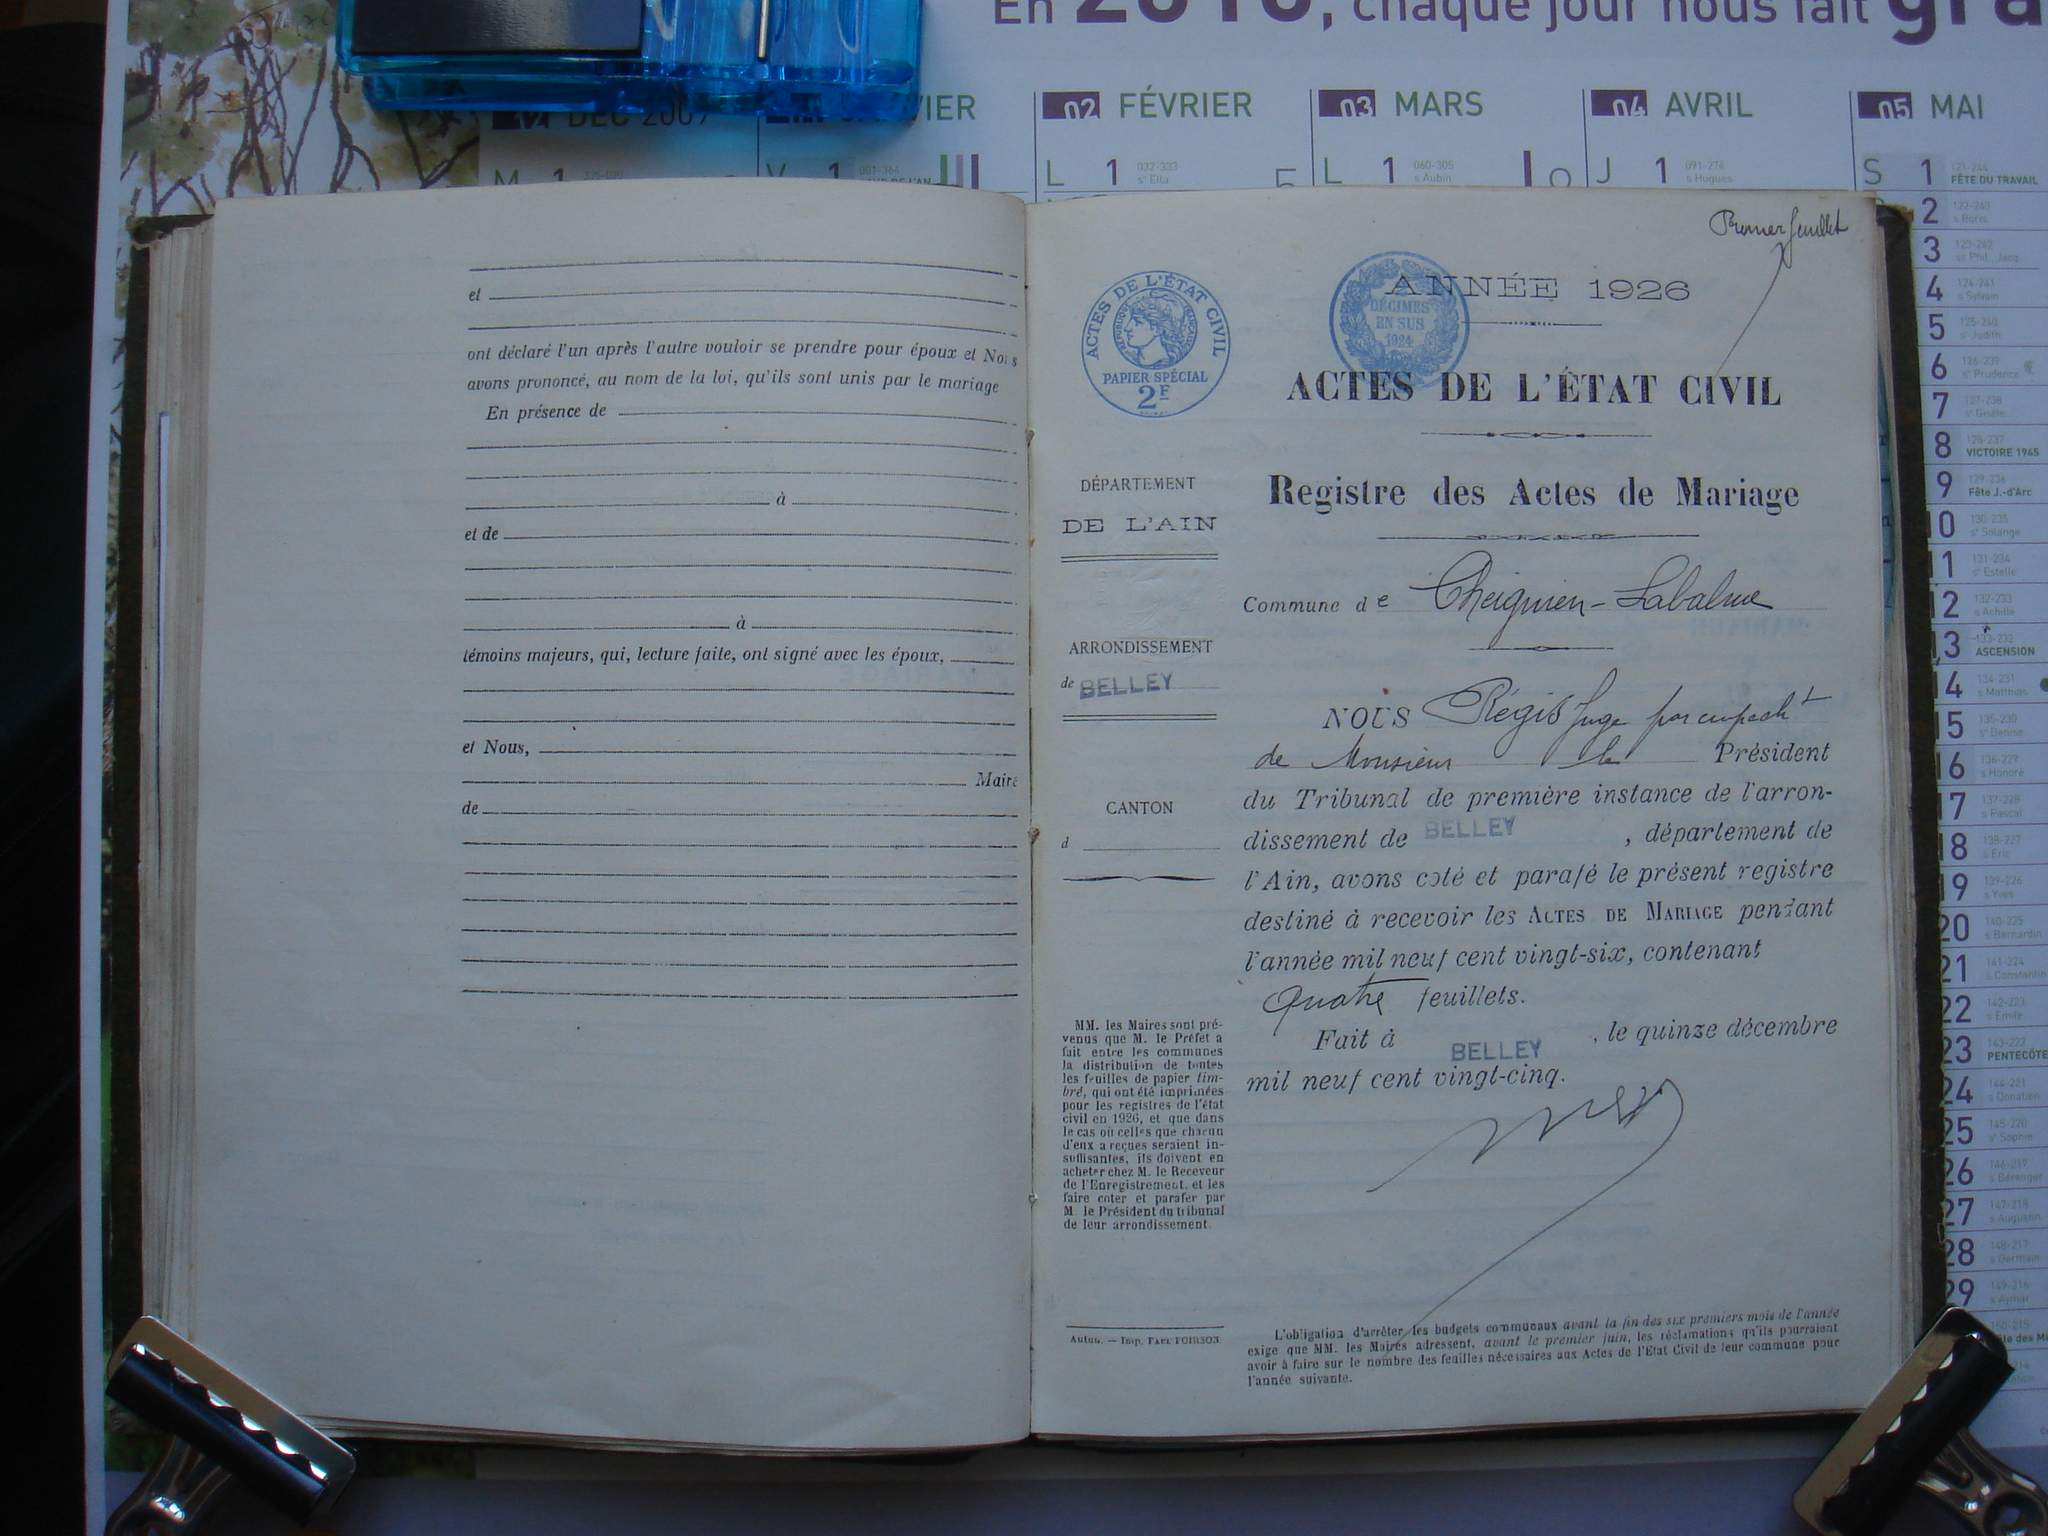 En 2010, chaque jour nous fait gra
DÉC 2009
VIER
02 FÉVRIER
03 MARS
04 AVRIL
05 MAI
M 1
V 1 001-364
L 1 032-333
se Ella
L 1 060-305
s Aubin
J 1 091-274
s Hugues
S 1 121-244
FÊTE DU TRAVAIL
2 122-243
s Boris
3 123-242
ss Phil., Jacq.
4 124-241
s Sylvain
5 125-240
se Judith
6 126-239
se Prudence
7 127-238
se Gisèle
8 128-237
VICTOIRE 1945
9 129-236
Fête J.-d'Arc
10 130-235
se Solange
11 131-234
se Estelle
12 132-233
s Achille
13 133-232
ASCENSION
14 134-231
s Matthias
15 135-230
se Denise
16 136-229
s Honoré
17 137-228
s Pascal
18 138-227
s Eric
19 139-226
s Yves
20 140-225
s Bernardin
21 141-224
s Constantin
22 142-223
s Emile
23 143-222
PENTECÔTE
24 144-221
s Donatien
25 145-220
se Sophie
26 146-219
s Bérenger
27 147-218
s Augustin
28 148-217
s Germain
29 149-216
s Aymar
150-215
et
ont déclaré l'un après l'autre vouloir se prendre pour époux et Nous
avons prononcé, au nom de la loi, qu'ils sont unis par le mariage
En présence de
à
et de
à
témoins majeurs, qui, lecture faite, ont signé avec les époux,
et Nous,
Maire
de
Premier feuillet
ACTES DE L'ÉTAT CIVIL
RÉPUBLIQUE FRANÇAISE
PAPIER SPÉCIAL
2F
DÉCIMES
EN SUS
1924
ANNÉE 1926
ACTES DE L'ÉTAT CIVIL
Registre des Actes de Mariage
DÉPARTEMENT
DE L'AIN
Commune de Cheignieu-Labalme
ARRONDISSEMENT
de BELLEY
CANTON
d
NOUS Régis Juge par empecht
de Monsieur le Président
du Tribunal de première instance de l'arron-
dissement de BELLEY, département de
l'Ain, avons coté et parafé le présent registre
destiné à recevoir les ACTES DE MARIAGE pendant
l'année mil neuf cent vingt-six, contenant
Quatre feuillets.
Fait à BELLEY, le quinze décembre
mil neuf cent vingt-cinq.
MM. les Maires sont pré-
venus que M. le Préfet a
fait entre les communes
la distribution de toutes
les feuilles de papier tim-
bré, qui ont été imprimées
pour les registres de l'état
civil en 1926, et que dans
le cas où celles que chacun
d'eux a reçues seraient in-
suffisantes, ils doivent en
acheter chez M. le Receveur
de l'Enregistrement, et les
faire coter et parafer par
M. le Président du tribunal
de leur arrondissement.
Autun. — Imp. PAUL POIRSON
L'obligation d'arrêter les budgets communaux avant la fin des six premiers mois de l'année
exige que MM. les Maires adressent, avant le premier juin, les réclamations qu'ils pourraient
avoir à faire sur le nombre des feuilles nécessaires aux Actes de l'État Civil de leur commune pour
l'année suivante.